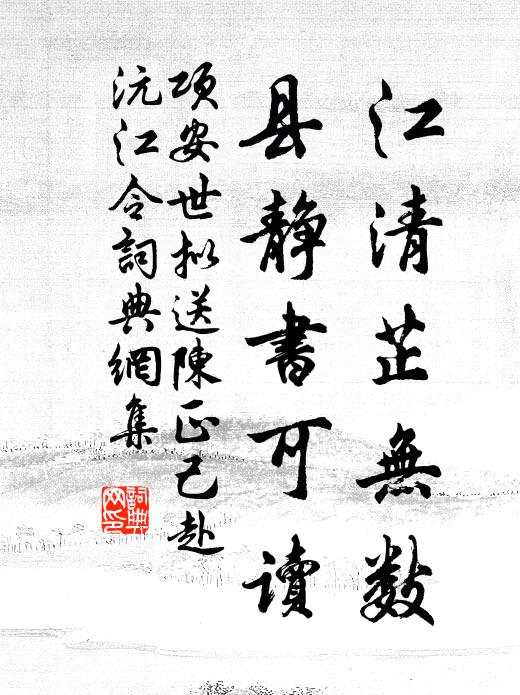 江清芷無數
县静書可讀
项安世拟送陳正己赴
沅江令詞典網集
詞典网印